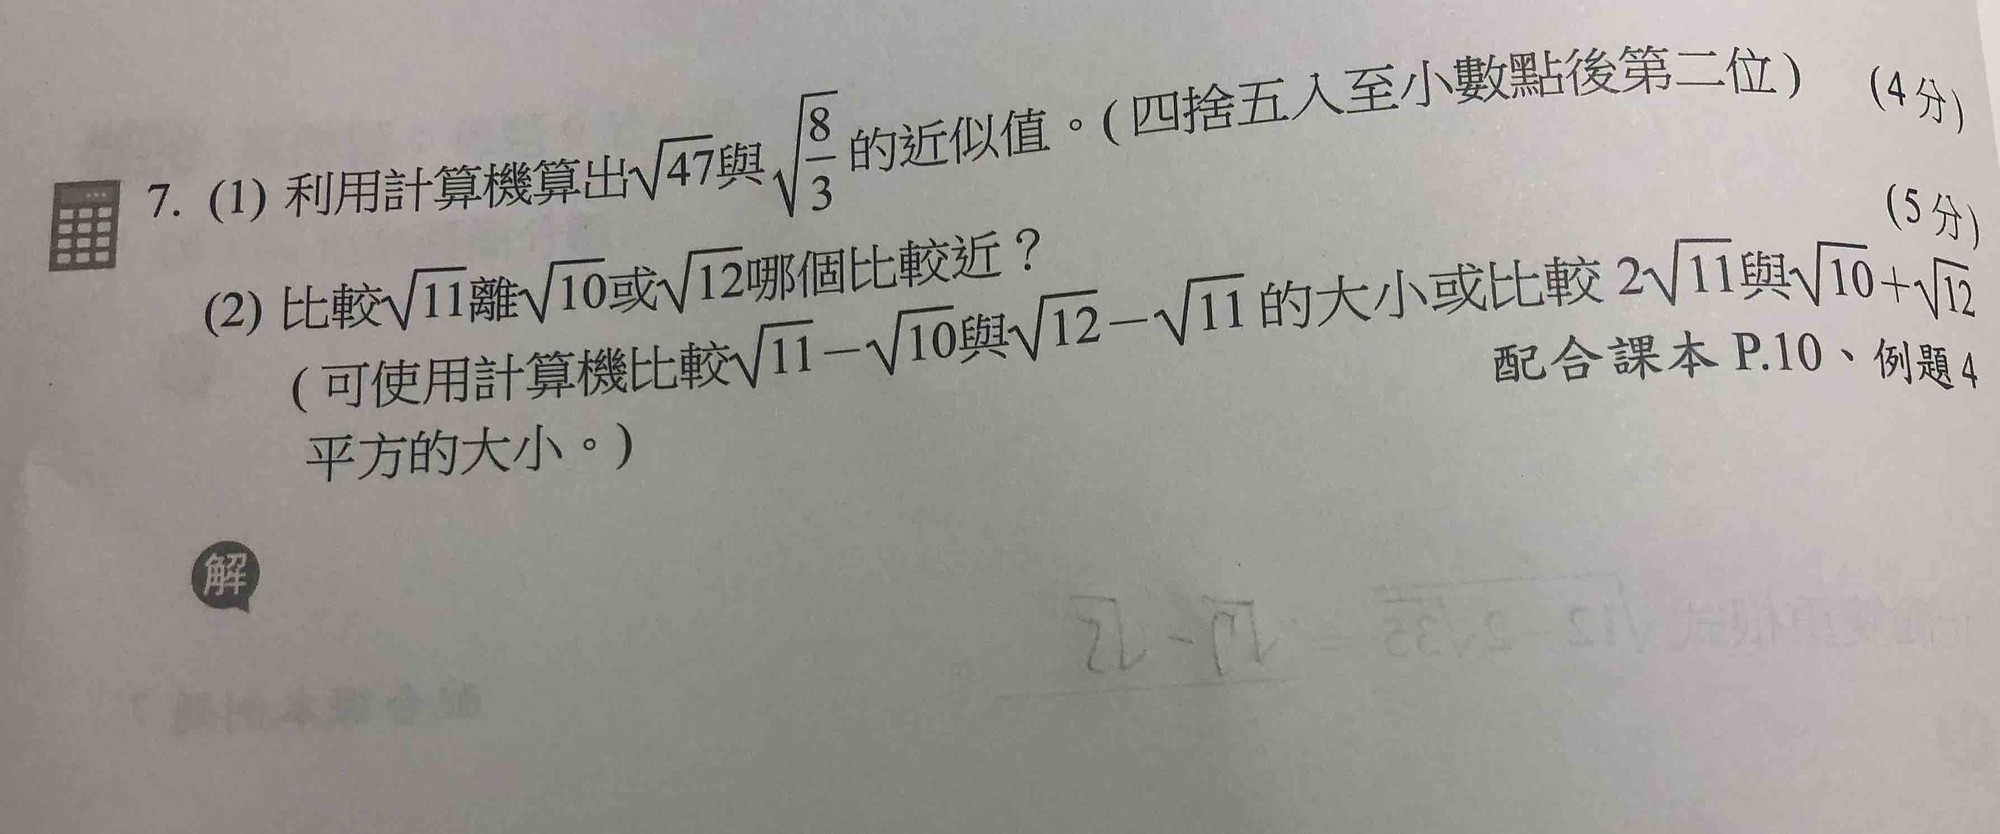 7. (1) 利用計算機算出√47與√(8/3)的近似值。(四捨五入至小數點後第二位) (4分)
(2) 比較√11離√10或√12哪個比較近？ (5分)
(可使用計算機比較√11－√10與√12－√11的大小或比較 2√11與√10＋√12
平方的大小。) 配合課本 P.10、例題4
解